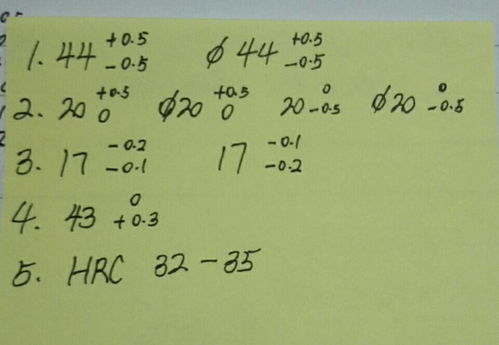 1. 44 +0.5 -0.5 φ44 +0.5 -0.5
2. 20 +0.5 0 φ20 +0.5 0 20 0 -0.5 φ20 0 -0.5
3. 17 -0.2 -0.1 17 -0.1 -0.2
4. 43 0 +0.3
5. HRC 32-35